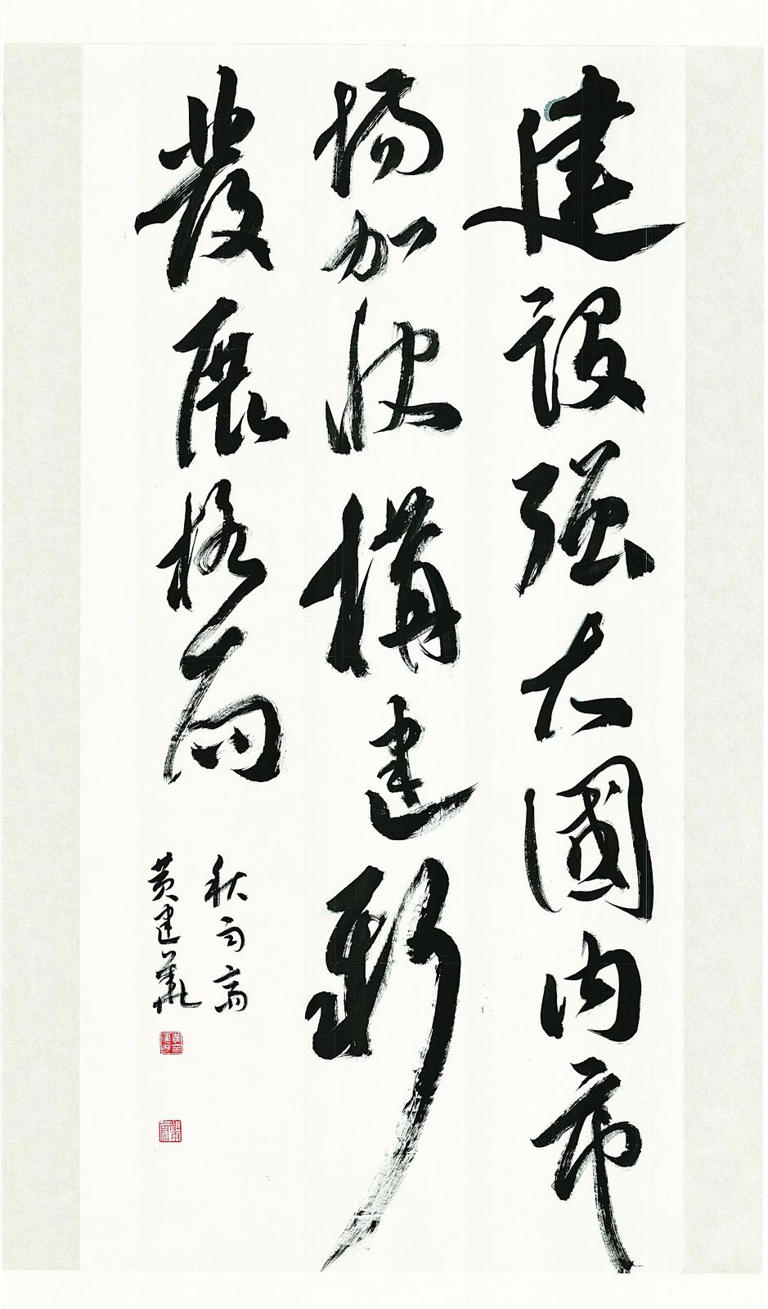 建設强大國內市
場加快構建新
發展格局
秋雨齋
黃建華